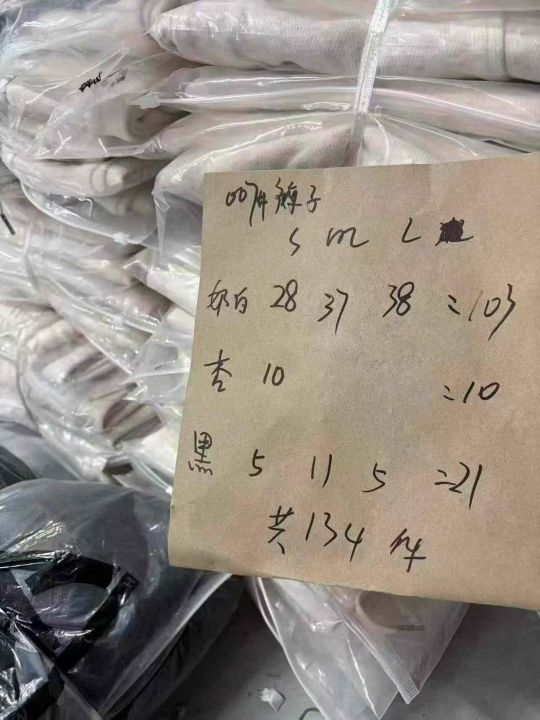 0074 裤子
S M L
奶白 28 37 38 =103
杏 10 =10
黑 5 11 5 =21
共134件